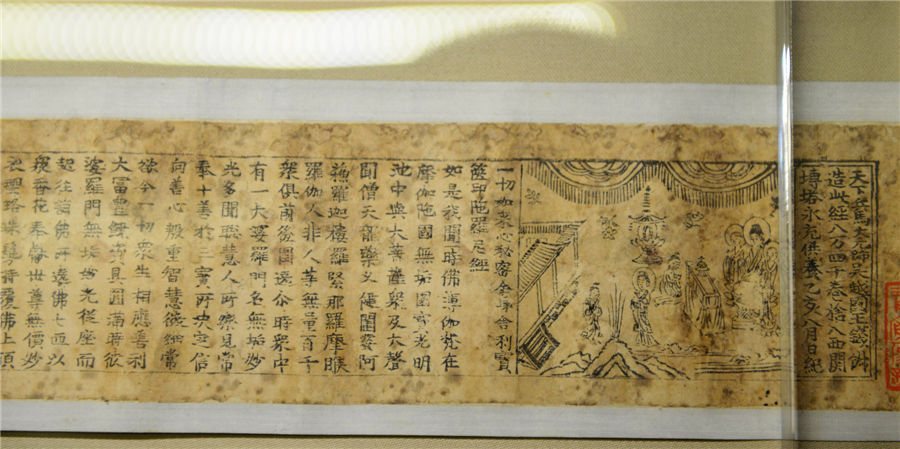 天下兵馬大元帥吳越國王錢俶
造此經八万四千卷捨入西關
塼塔永充供養乙亥八月日紀
一切如來心祕密全身舍利寶
篋印陀羅尼經
如是我聞一時佛薄伽梵在
摩伽陀國無垢園寶光明
池中與大菩薩衆及大聲
聞僧天龍藥叉健闥婆阿
蘇羅迦樓羅緊那羅摩睺
羅伽人非人等無量百千
衆俱前後圍遶尒時衆中
有一大婆羅門名無垢妙
光多聞聰慧人所樂見常
奉十善於三寶所決定信
向善心殷重智慧微細常
欲令一切衆生相應善利
大富豐饒資具圓滿時彼
婆羅門無垢妙光從座而
起往詣佛所遶佛七帀以
衆香花奉獻世尊無價妙
衣瓔珞珠鬘持覆佛上頂